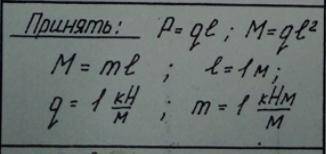 Принять: P = qℓ ; M = qℓ²
M = mℓ ; ℓ = 1 м ;
q = 1 кН/м ; m = 1 кНм/м